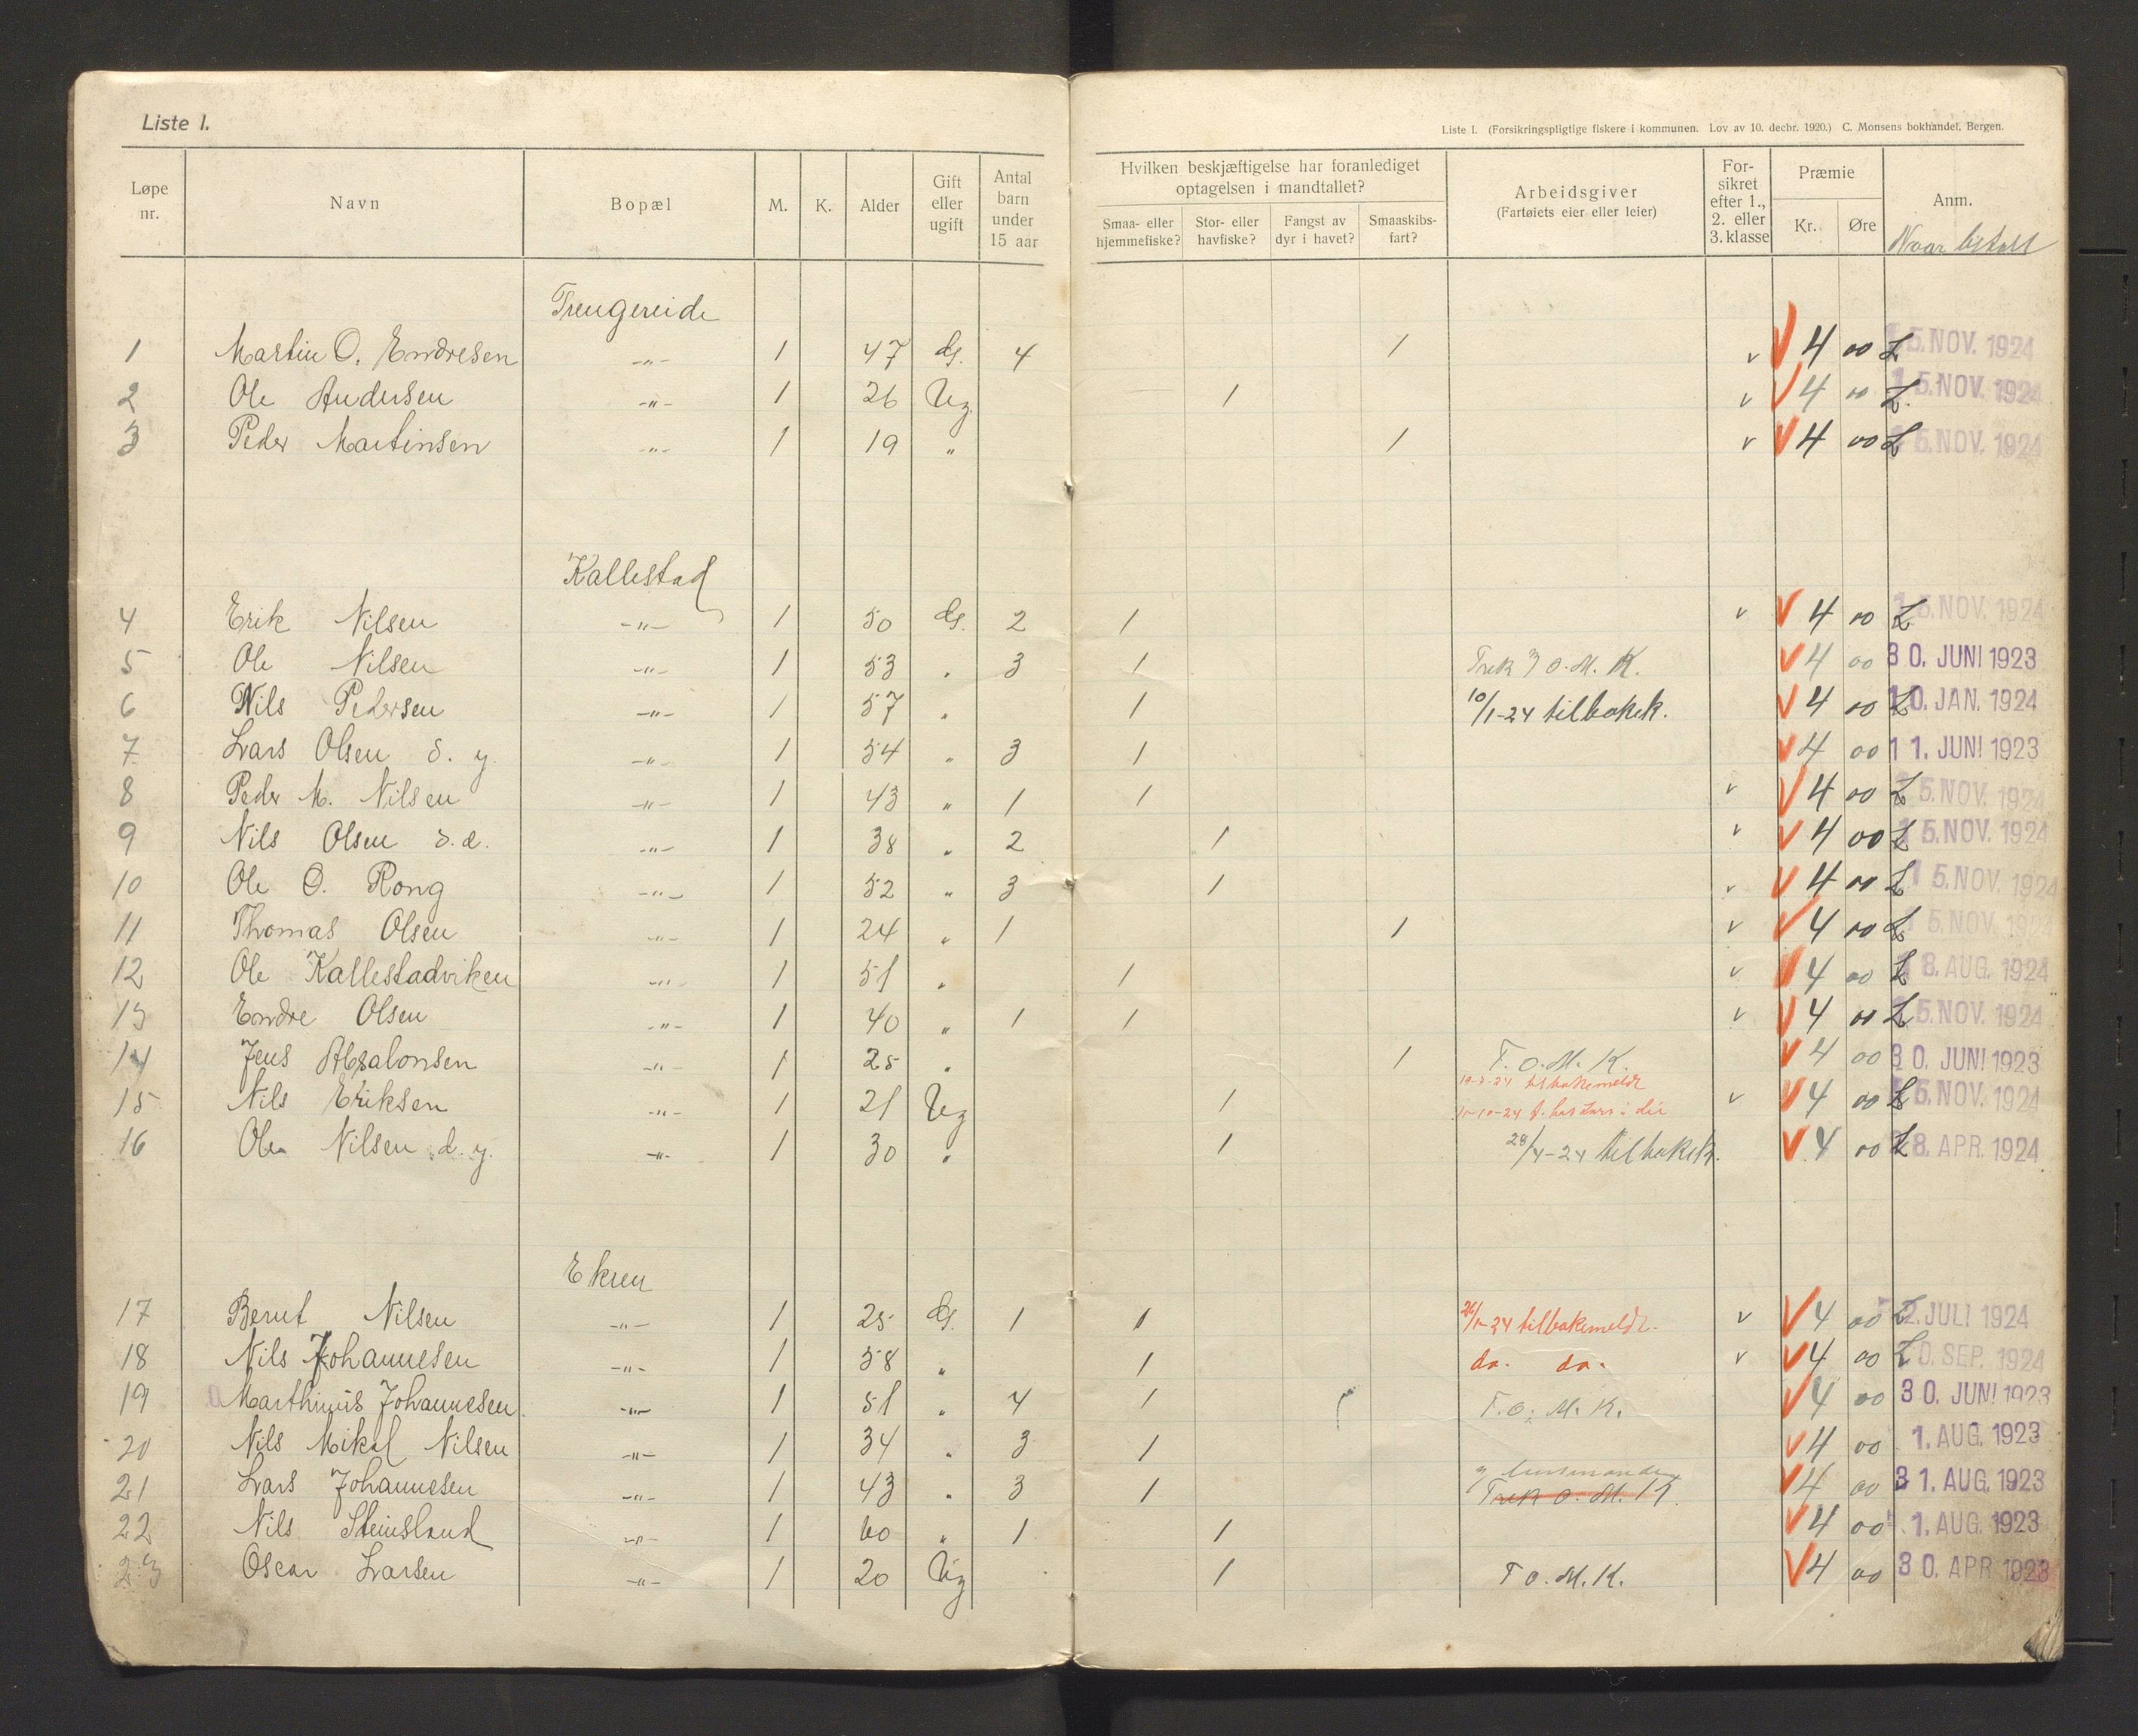 Liste 1.
Liste 1. (Forsikringspligtige fiskere i kommunen. Lov av 10. decbr. 1920.) C. Monsens bokhandel, Bergen.
Løpe nr. Navn Bopæl M. K. Alder Gift eller ugift Antal barn under 15 aar Hvilken beskjæftigelse har foranlediget optagelsen i mandtallet? Smaa- eller hjemmefiske? Stor- eller havfiske? Fangst av dyr i havet? Smaaskibs-fart? Arbeidsgiver (Fartøiets eier eller leier) For-sikret efter 1., 2. eller 3. klasse Præmie Kr. Øre Anm. Naar betalt
Trengereide
1 Martin O. Endresen -"- 1 47 G. 4 1 v V 4 00 15. NOV. 1924
2 Ole Andersen -"- 1 26 Ug. 1 v V 4 00 15. NOV. 1924
3 Peder Martinsen -"- 1 19 " 1 v V 4 00 15. NOV. 1924
Kallestad
4 Erik Nilsen -"- 1 50 G. 2 1 v V 4 00 15. NOV. 1924
5 Ole Nilsen -"- 1 53 " 3 1 Trek O. M. K. V 4 00 30. JUNI 1923
6 Nils Pedersen -"- 1 57 " 1 10/1-24 tilbakek. V 4 00 10. JAN. 1924
7 Lars Olsen d. y. -"- 1 54 " 3 1 V 4 00 11. JUNI 1923
8 Peder M. Nilsen -"- 1 43 " 1 1 v V 4 00 15. NOV. 1924
9 Nils Olsen d. e. -"- 1 38 " 2 1 v V 4 00 15. NOV. 1924
10 Ole O. Rong -"- 1 52 " 3 1 v V 4 00 15. NOV. 1924
11 Thomas Olsen -"- 1 24 " 1 1 v V 4 00 15. NOV. 1924
12 Ole Kallestadviken -"- 1 51 " 1 v V 4 00 18. AUG. 1924
13 Endre Olsen -"- 1 40 " 1 1 v V 4 00 15. NOV. 1924
14 Jens Absalonsen -"- 1 25 " 1 T. O. M. K. V 4 00 30. JUNI 1923
tilbakemeldt
15 Nils Eriksen -"- 1 21 Ug 1 v V 4 00 15. NOV. 1924
16 Ole Nilsen d. y. -"- 1 30 " 1 28/4-24 tilbakek. V 4 00 28. APR. 1924
Ekren
17 Bernt Nilsen -"- 1 25 G. 1 1 tilbakemeldt. v V 4 00 2. JULI 1924
18 Nils Johannesen -"- 1 58 " 1 do. do. v V 4 00 SEP. 1924
19 Marthinus Johannesen -"- 1 51 " 4 1 T. O. M. K. V 4 00 30. JUNI 1923
20 Nils Mikal Nilsen -"- 1 34 " 3 1 V 4 00 1. AUG. 1923
21 Lars Johannesen -"- 1 43 " 3 1 Trek O. M. K. V 4 00 31. AUG. 1923
22 Nils Steinsland -"- 1 60 " 1 1 V 4 00 1. AUG. 1923
23 Oscar Larsen -"- 1 20 Ug 1 T O. M. K. V 4 00 30. APR 1923